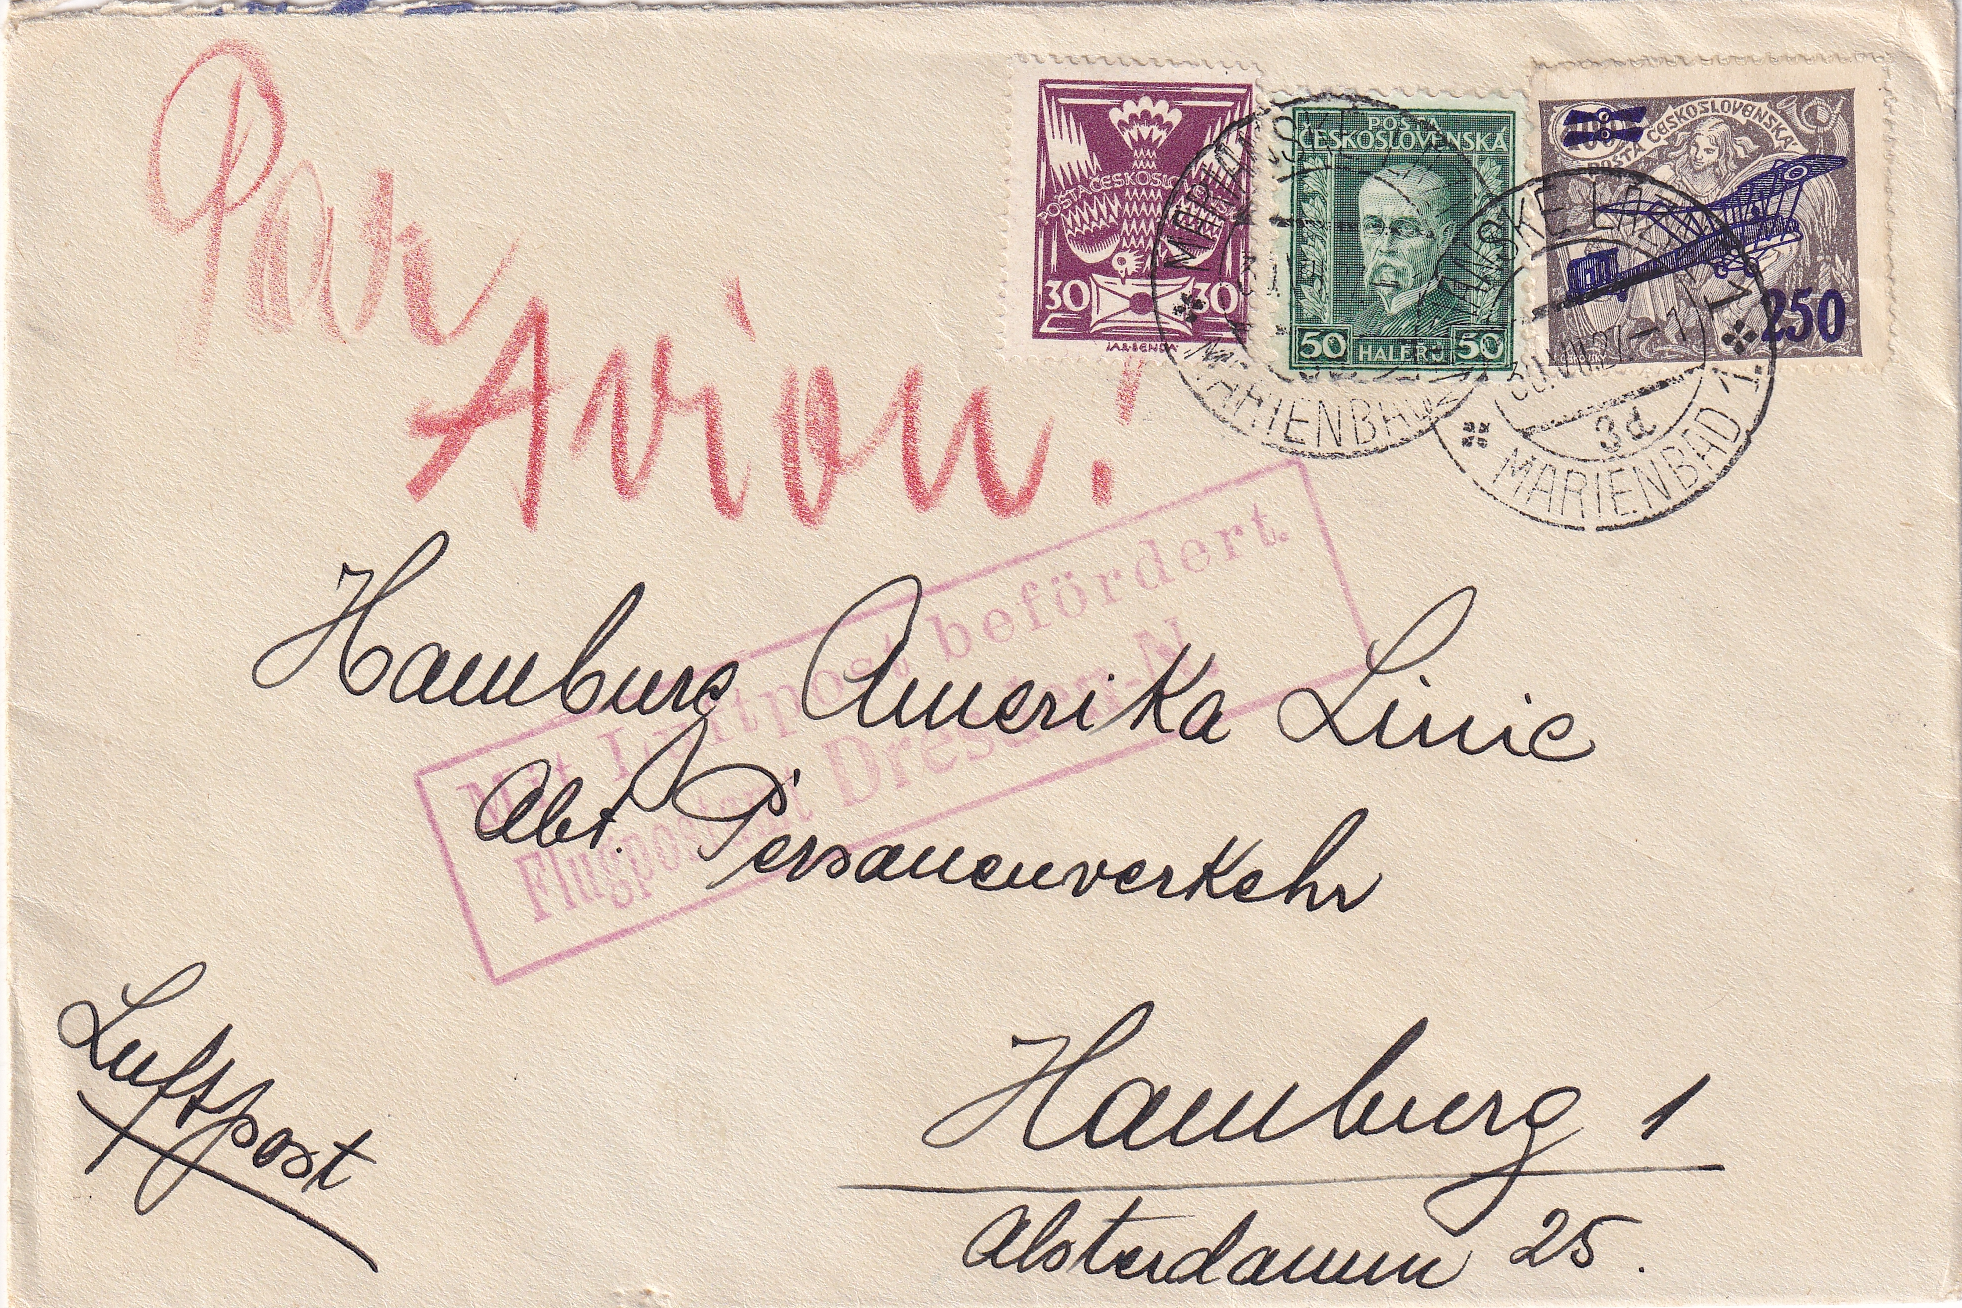 Par
Avion!
POŠTA ČESKOSLOVENSKÁ
30 30
JAR.BENDA
POŠTA
ČESKOSLOVENSKÁ
50 HALÉŘŮ 50
POŠTA ČESKOSLOVENSKÁ
250
OBROVSKÝ
MARIÁNSKÉ
MARIENBAD
NSKÉ LÁZ
30.VII.27.-1
3d
MARIENBAD 1
Mit Luftpost befördert.
Flugpostamt Dresden-N.
Hamburg Amerika Linie
Abt. Personenverkehr
Luftpost
Hamburg 1
Alsterdamm 25.